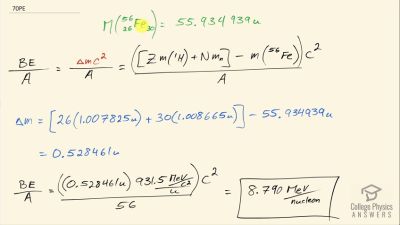 70PE
M(⁵⁶₂₆Fe₃₀) = 55.934939u
BE/A = Δmc²/A = ([Zm(¹H) + Nmₙ] - m(⁵⁶Fe))c²/A
Δm = [26(1.007825u) + 30(1.008665u)] - 55.934939u
= 0.528461u
BE/A = ((0.528461u) 931.5 MeV/c²/u)c²/56 = 8.790 MeV/nucleon
College Physics
ANSWERS